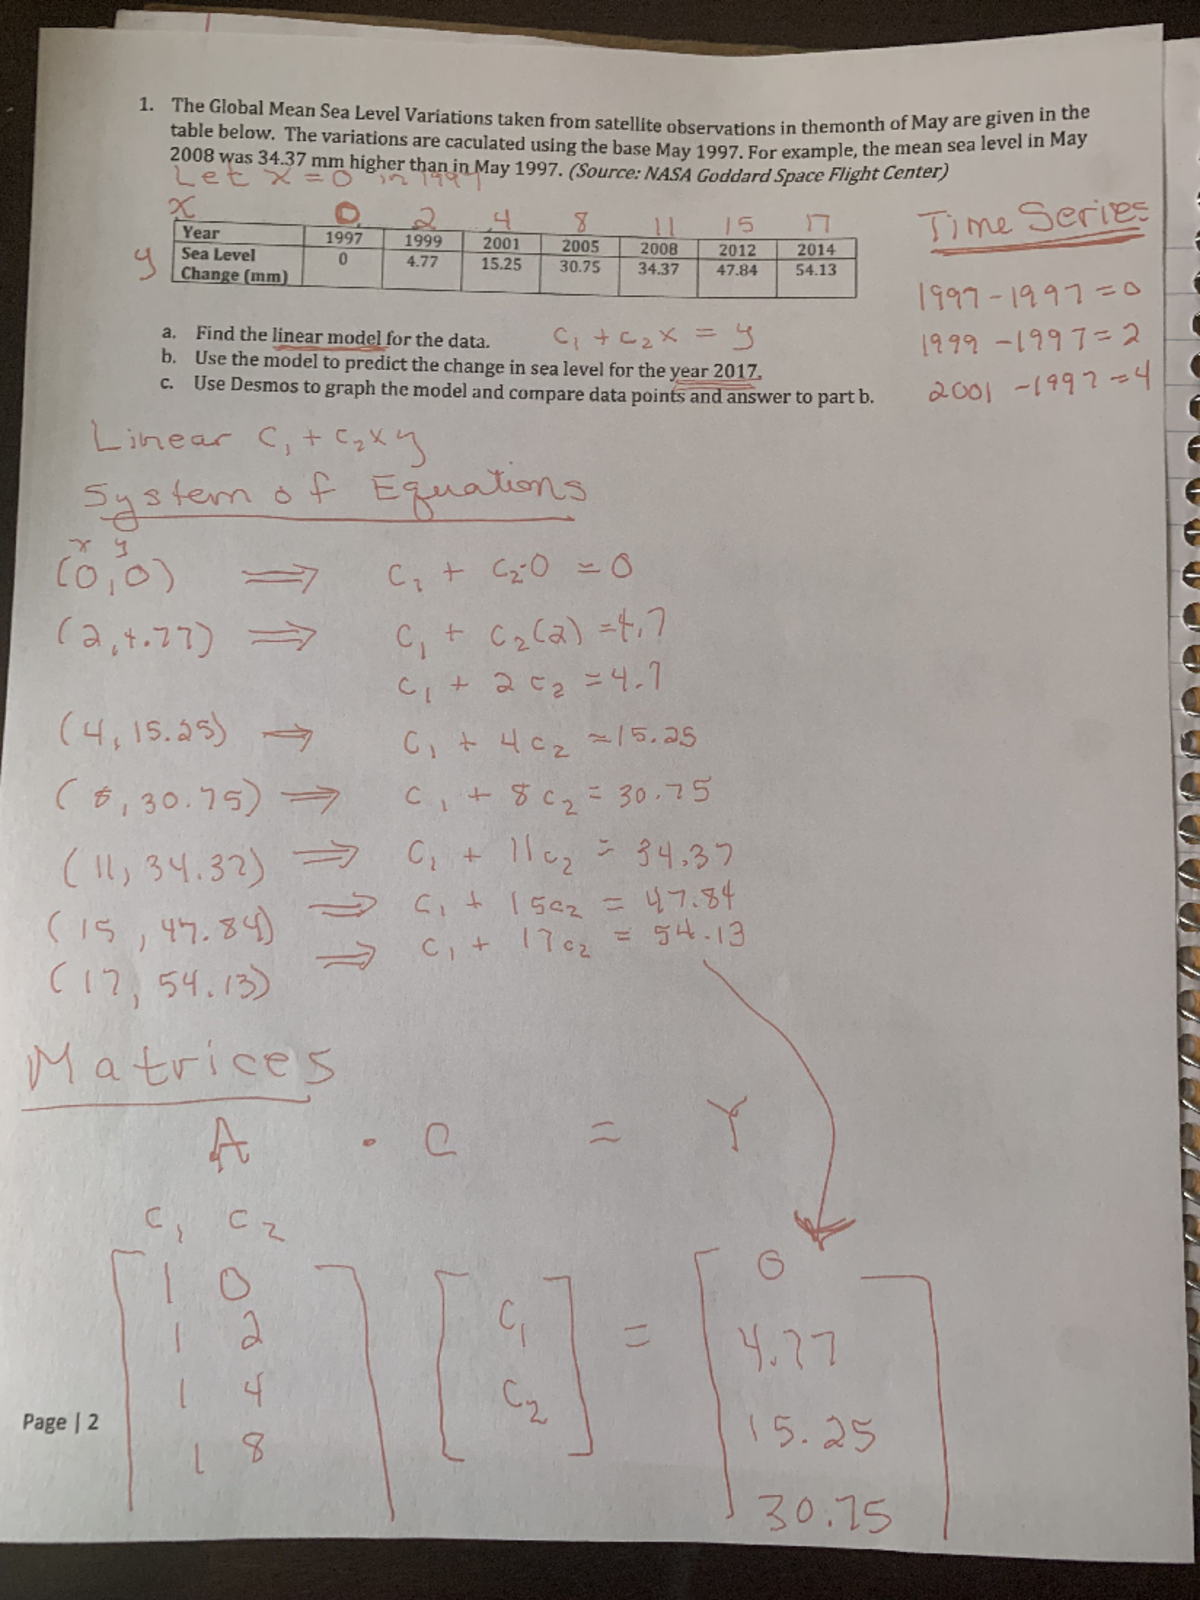 1. The Global Mean Sea Level Variations taken from satellite observations in themonth of May are given in the
table below. The variations are caculated using the base May 1997. For example, the mean sea level in May
2008 was 34.37 mm higher than in May 1997. (Source: NASA Goddard Space Flight Center)
Let x = 0 in 1997
x 0 2 4 8 11 15 17
Year 1997 1999 2001 2005 2008 2012 2014
y Sea Level Change (mm) 0 4.77 15.25 30.75 34.37 47.84 54.13
Time Series
1997 - 1997 = 0
1999 - 1997 = 2
2001 - 1997 = 4
a. Find the linear model for the data. C₁ + C₂x = y
b. Use the model to predict the change in sea level for the year 2017.
c. Use Desmos to graph the model and compare data points and answer to part b.
Linear C₁ + C₂x y
System of Equations
x y
(0,0) ⇒ C₁ + C₂·0 = 0
(2,4.77) ⇒ C₁ + C₂(2) = 4.7
C₁ + 2C₂ = 4.7
(4,15.25) ⇒ C₁ + 4C₂ = 15.25
(8,30.75) ⇒ C₁ + 8C₂ = 30.75
(11,34.37) ⇒ C₁ + 11C₂ = 34.37
(15,47.84) ⇒ C₁ + 15C₂ = 47.84
(17,54.13) ⇒ C₁ + 17C₂ = 54.13
Matrices
A · C = Y
C₁ C₂
1 0 0
1 2 C₁ = 4.77
1 4 C₂ 15.25
1 8 30.75
Page | 2